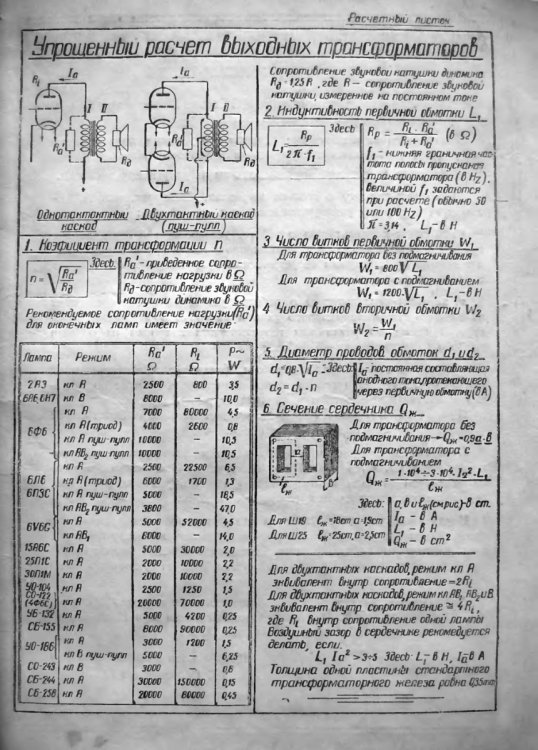 Расчетный листок
Упрощенный расчет выходных трансформаторов
Ri
Ia
I
II
Ra'
Rд
Ia
I
II
Ra'
Rд
Ia
Однотактактный
каскад
Двухтактный каскад
(пуш-пулл)
1. Коэфициент трансформации n
n = √Ra'/Rд
Здесь:
Ra'-приведенное сопро-
тивление нагрузки в Ω
Rд-сопротивление звуковой
катушки динамика в Ω
Рекомендуемое сопротивление нагрузки(Ra')
для оконечных ламп имеет значение:
Лампа Режим Ra' Ω Ri Ω P~ W
2А3 кл А 2500 800 3,5
6А6,6Н7 кл В 8000 — 10,0
6Ф6 кл А 7000 80000 4,5
кл А(триод) 4000 2600 0,8
кл А пуш-пулл 10000 — 10,3
кл АВ₂ пуш-пулл 10000 — 10,5
6Л6 кл А 2500 22500 6,5
6П3С кл А(триод) 6000 1700 1,3
кл А пуш-пулл 5000 — 18,5
кл АВ₂ пуш-пулл 3800 — 47,0
6V6G кл А 5000 52000 4,5
кл АВ₁ 8000 — 14,0
15А6С кл А 5000 30000 2,0
25П1С кл А 2000 10000 2,2
30П1М кл А 2000 10000 2,2
УО-104 кл А 2500 1250 1,5
СО-122
(4Ф6С) кл А 20000 70000 1,0
УБ-132 кл А 5000 4200 0,25
СБ-155 кл А 6000 90000 0,25
УО-186 кл А 3000 1200 1,5
кл В пуш-пулл 5000 — 6,25
СО-243 кл В 3000 — 0,8
СБ-244 кл А 30000 150000 0,15
СБ-258 кл А 20000 80000 0,45
Сопротивление звуковой катушки динамика
Rд = 1,25R , где R — сопротивление звуковой
катушки, измеренное на постоянном токе
2. Индуктивность первичной обмотки L₁
L₁ = Rp/2π·f₁
Здесь:
Rp = Ri·Ra'/Ri+Ra' (в Ω)
f₁ - нижняя граничная час-
тота полосы пропускания
трансформатора (в Hz),
величиной f₁ задаются
при расчете (обычно 50
или 100 Hz)
π = 3,14 , L₁ - в H
3 Число витков первичной обмотки W₁
Для трансформатора без подмагничивания
W₁ = 800√L₁
Для трансформатора с подмагничиванием
W₁ = 1200·√L₁ , L₁ - в H
4 Число витков вторичной обмотки W₂
W₂ = W₁/n
5. Диаметр проводов обмоток d₁ и d₂
d₁ = 0,8·√Ia
d₂ = d₁·n
Здесь:
Ia постоянная составляющая
анодного тока, протекающего
через первичную обмотку (в A)
6. Сечение сердечника Qж
Для трансформатора без
подмагничивания → Qж = 0,9а·в
Для трансформатора с
подмагничиванием
Qж = 1·10⁴ ÷ 3·10⁴·Ia²·L₁/ℓж
Здесь:
а, в и ℓж (см рис)-в cm.
Ia - в A
L₁ - в H
Qж - в cm²
Для Ш19 ℓж=18cm а=1,9cm
Для Ш25 ℓж=25cm, а=2,5cm
Для двухтактных каскадов, режим кл А
эквивалент внутр сопротивление = 2Ri
Для двухтактных каскадов, режим кл АВ₁ АВ₂ и В
эквивалент внутр сопротивление ≅ 4Ri ,
где Ri внутр сопротивление одной лампы
Воздушный зазор в сердечнике рекомедуется
делать, если
L₁ Ia² > 3÷5 Здесь: L₁-в H, Ia в A
Толщина одной пластины стандартного
трансформаторного железа равна 0,35mm